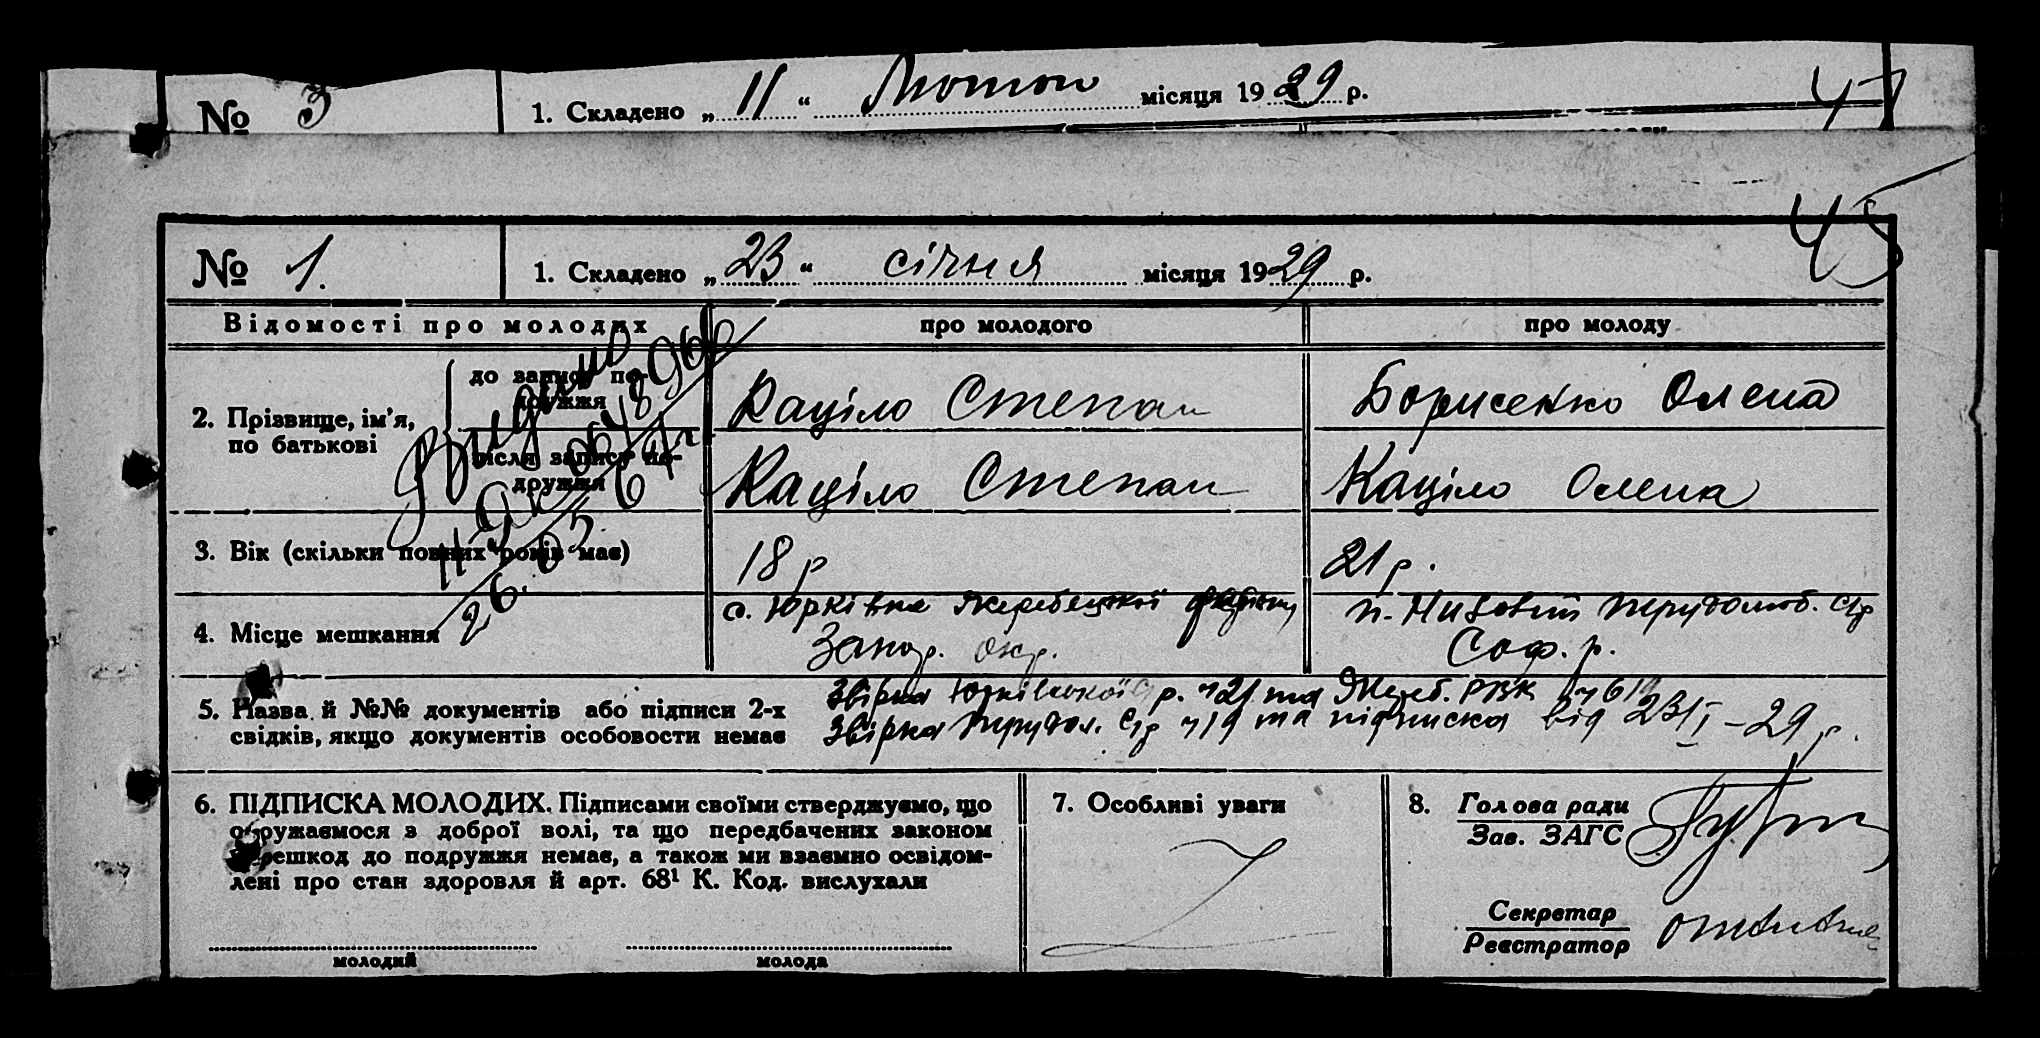 № 3
1. Складено „ 11 “ Лютого місяця 1929 р.
47
45
№ 1.
1. Складено „ 23 “ січня місяця 1929 р.
Відомості про молодих
про молодого
про молоду
2. Прізвище, ім’я, по батькові
до запису подружжя
Каціло Степан
Борисенко Олена
після запису подружжя
Каціло Степан
Каціло Олена
3. Вік (скільки повних років має)
18 р
21 р.
4. Місце мешкання
с. Юрківка Жеребецької
Запор. окр.
п. Низовий Трудолюб. с/р
Соф. р.
5. Назва й №№ документів або підписи 2-х
свідків, якщо документів особовости немає
Звірка Юрківської р. ч 21 та Жереб. РВК
Звірка Трудол. с/р ч 19 та підписка від 23/I–29 р.
6. ПІДПИСКА МОЛОДИХ. Підписами своїми стверджуємо, що
одружаємося з доброї волі, та що передбачених законом
перешкод до подружжя немає, а також ми взаємно освідом-
лені про стан здоровля й арт. 68¹ К. Код. вислухали
молодий
молода
7. Особливі уваги
8. Голова ради
Зав. ЗАГС
Секретар
Реєстратор